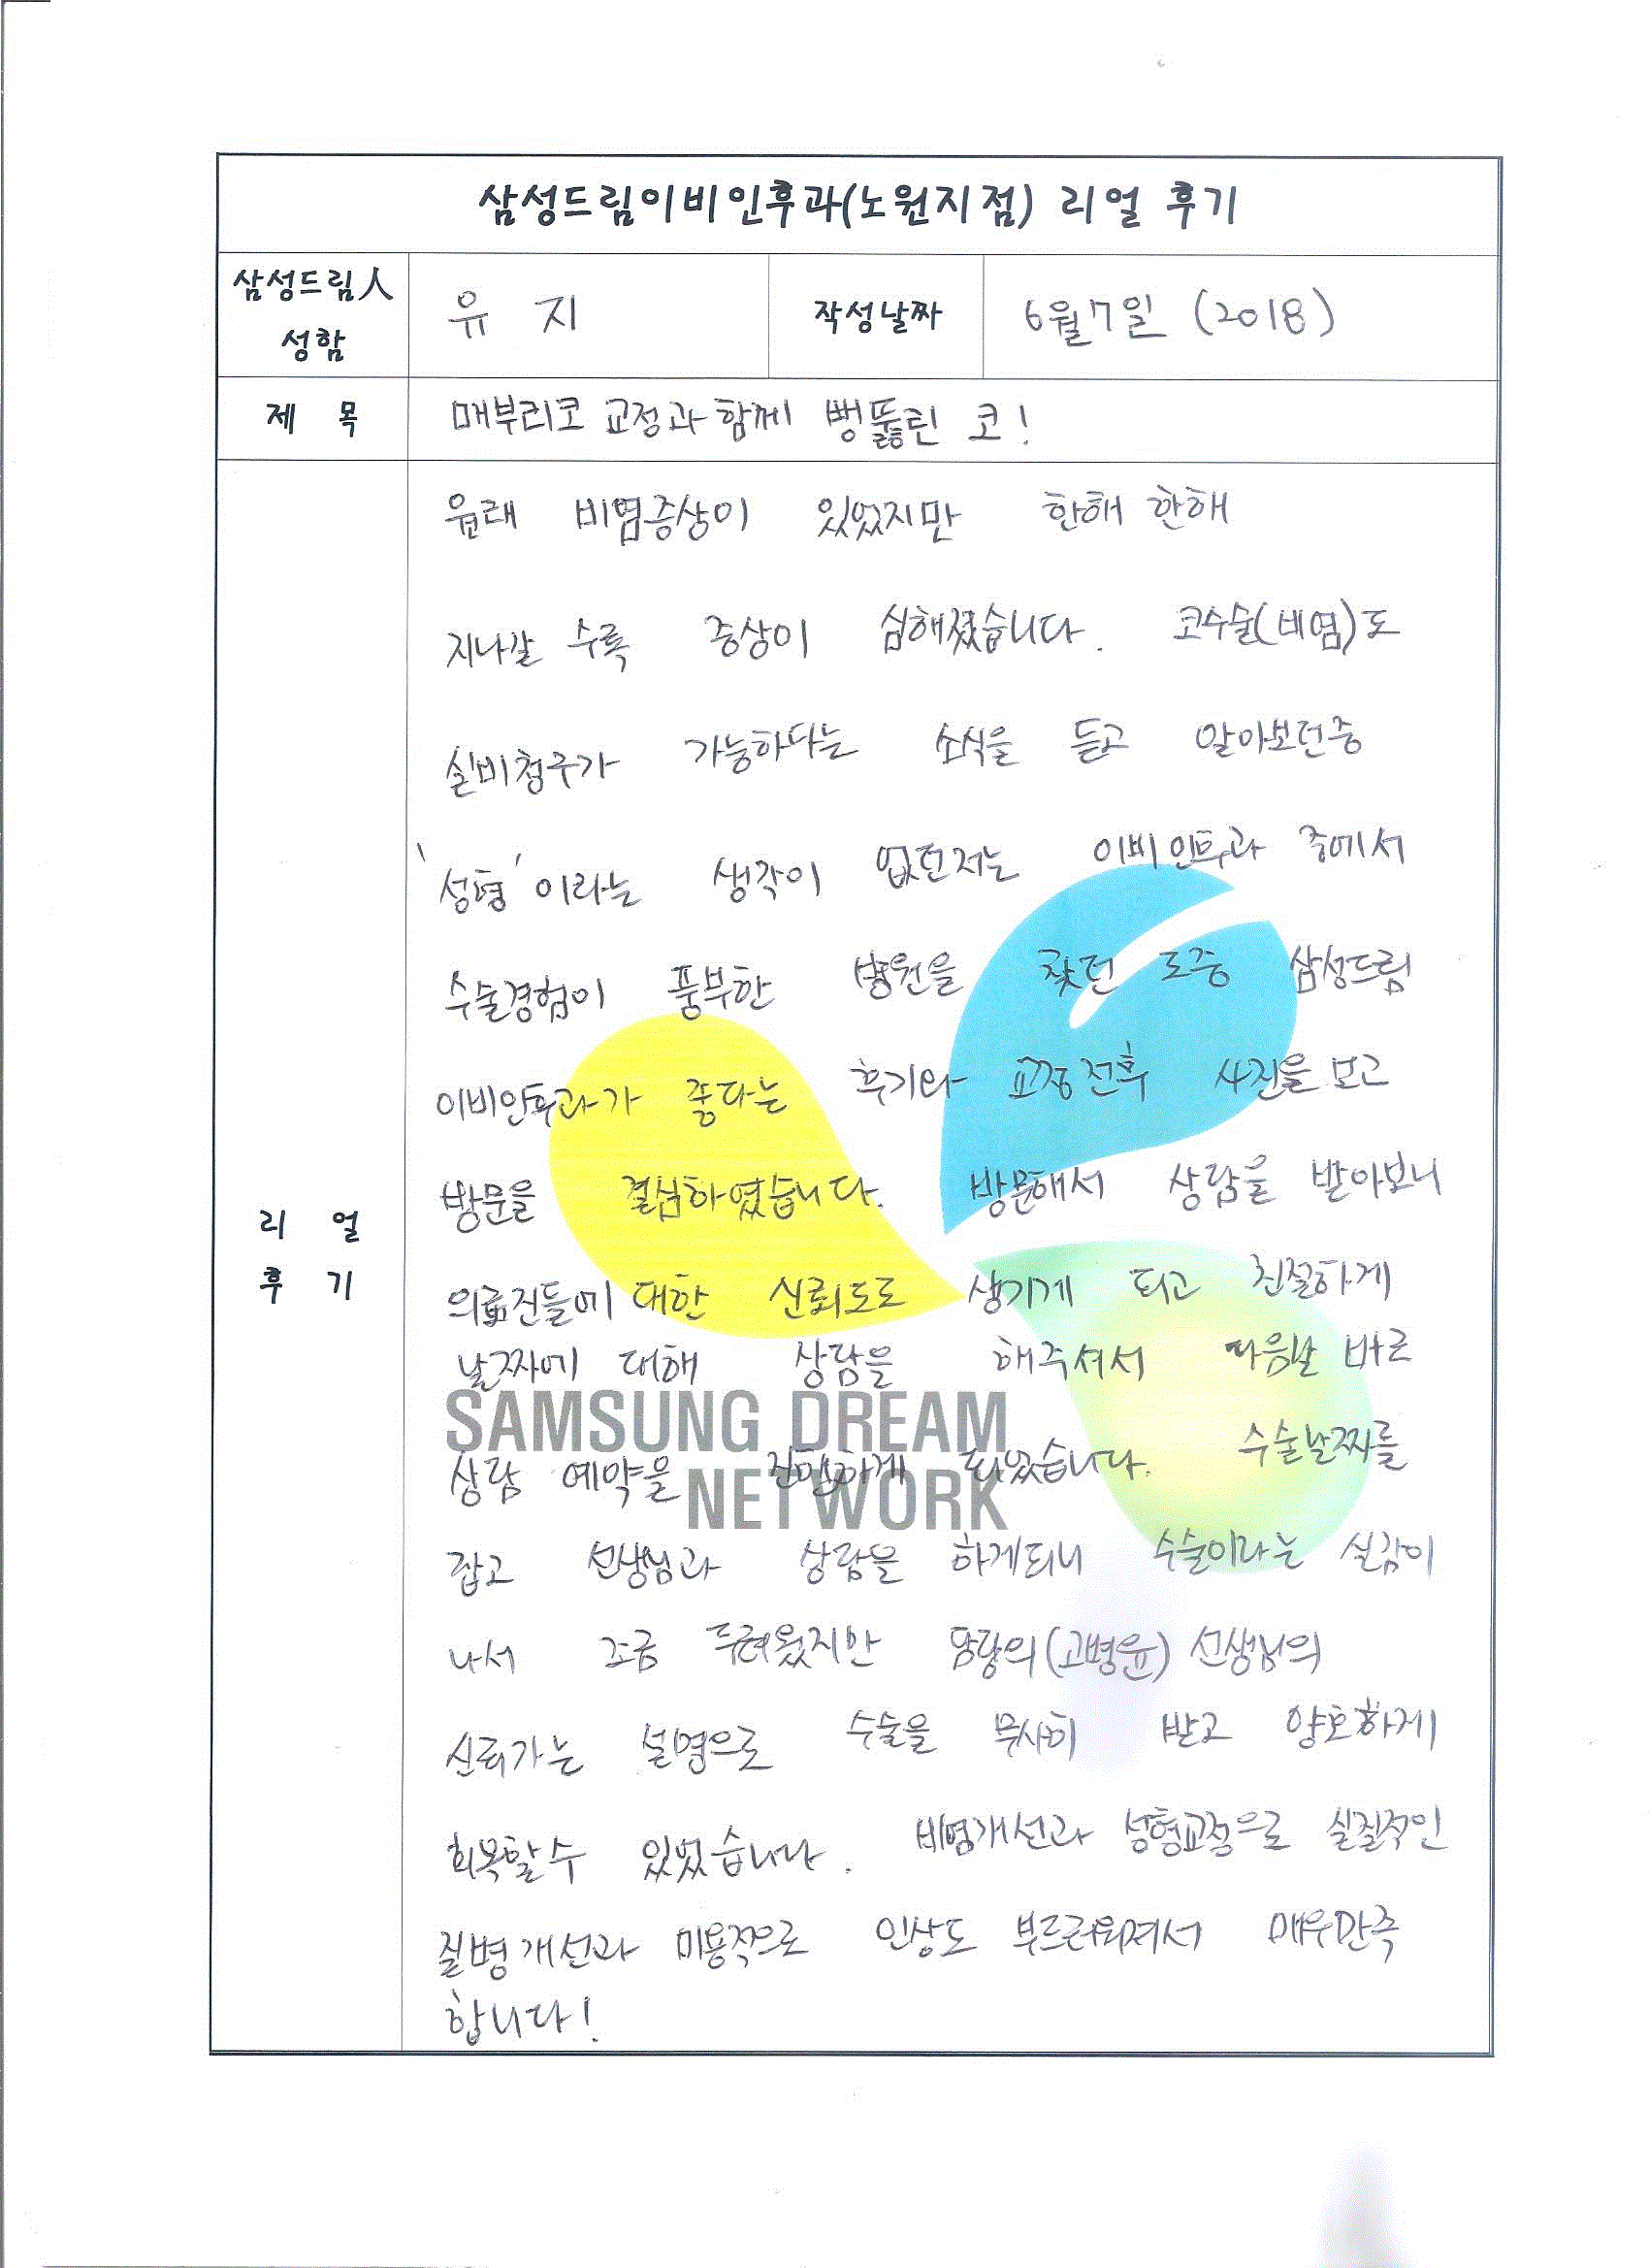 삼성드림이비인후과(노원지점) 리얼 후기
삼성드림人
성함
유 지
작성날짜
6월7일 (2018)
제 목
매부리코 교정과 함께 뻥뚫린 코!
리 얼
후 기
원래 비염증상이 있었지만 한해 한해
지나갈 수록 증상이 심해졌습니다. 코수술(비염)도
실비청구가 가능하다는 소식을 듣고 알아보던중
'성형'이라는 생각이 없던저는 이비인후과 중에서
수술경험이 풍부한 병원을 찾던 도중 삼성드림
이비인후과가 좋다는 후기와 교정전후 사진을 보고
방문을 결심하였습니다. 방문해서 상담을 받아보니
의료진들에 대한 신뢰도도 생기게 되고 친절하게
날짜에 대해 상담을 해주셔서 다음날 바로
SAMSUNG DREAM
상담 예약을 진행하게 되었습니다. 수술날짜를
NETWORK
잡고 선생님과 상담을 하게되니 수술이라는 실감이
나서 조금 두려웠지만 담당의(고병윤) 선생님의
신뢰가는 설명으로 수술을 무사히 받고 양호하게
회복할수 있었습니다. 비염개선과 성형교정으로 실질적인
질병개선과 미용적으로 인상도 부드러워져서 매우만족
합니다!